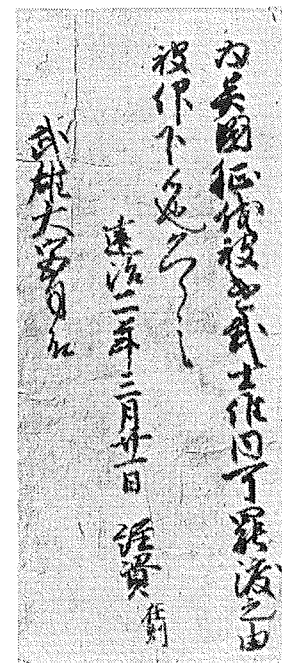 為異國征伐被遣武士候同可罷渡之由
被仰下候也
建治二年三月廿一日 經資 在判
武雄大宮司殿